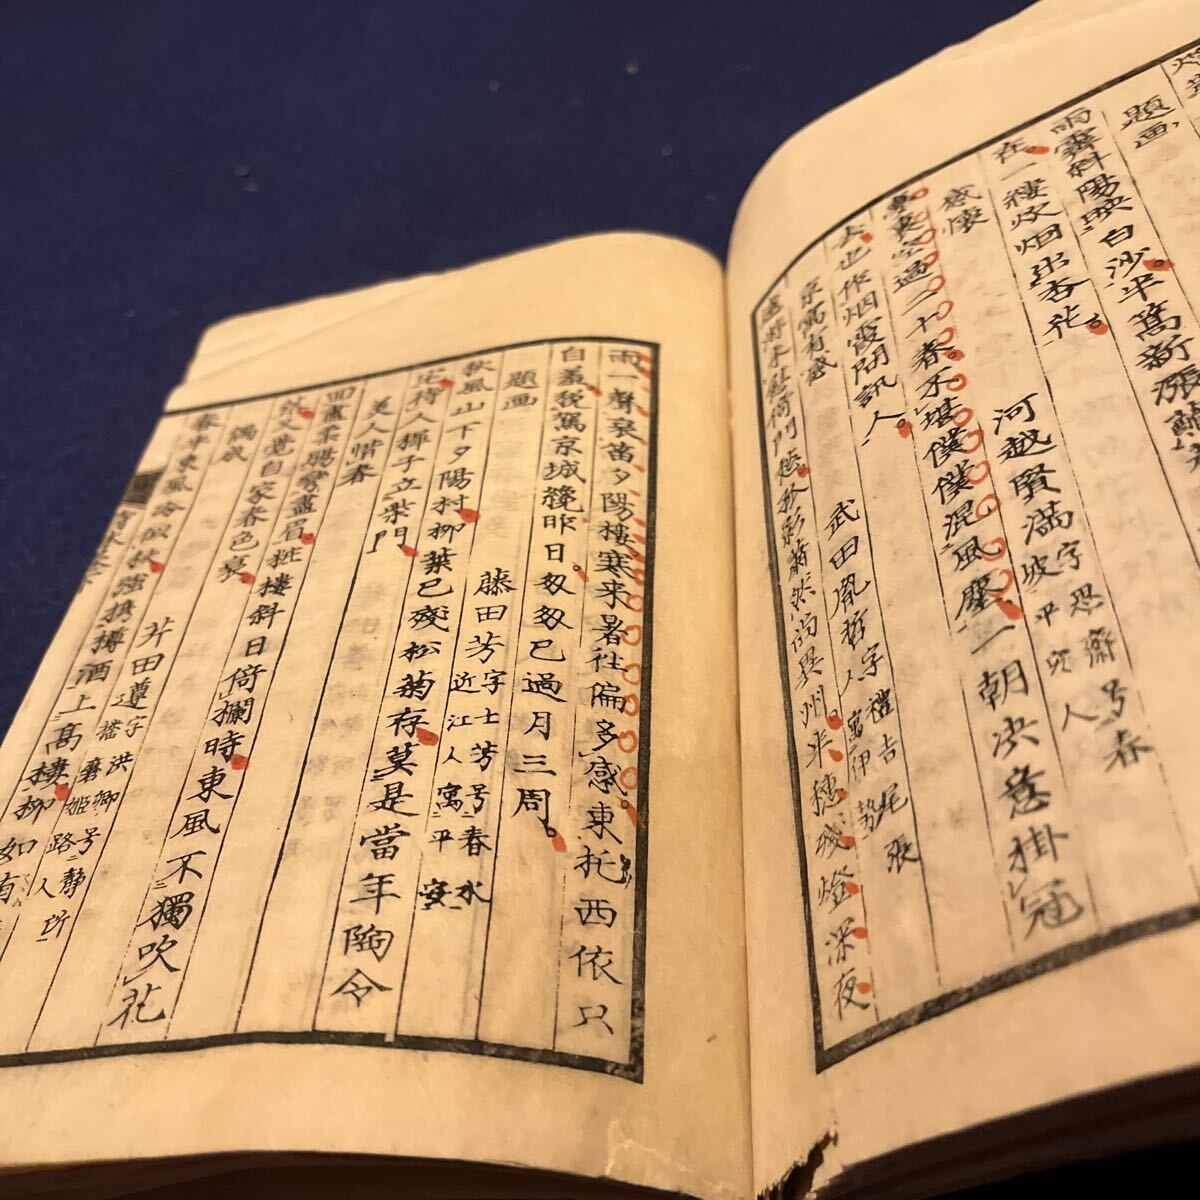 題画
雨霽斜陽映白沙半篙新漲
在一縷炊烟出杏花
河越賢満字思齋号春坡平安人
感懐
東奥空過二十春不堪僕僕混風塵一朝决意掛冠
去也作烟霞問訊人
武田胤哲字禮吉尾張人寓伊勢
京寓有感
門愁秋彩蕭然的異州半穂残燈深夜
雨一聲哀笛夕陽樓寒来暑往偏多感東托西依只
自羞税駕京城纔昨日匆匆已過月三周
藤田芳字士芳号春水近江人寓平安
題画
秋風山下夕陽村柳葉已殘松菊存莫是當年陶令
宅待人稚子立柴門
美人惜春
四畫眉粧樓斜日倚欄時東風不獨吹花
又覺自家春色衰
芥田遵字洪卿号静所播磨姫路人
偶成
春半東風冷似秋強携樽酒上高樓柳如有